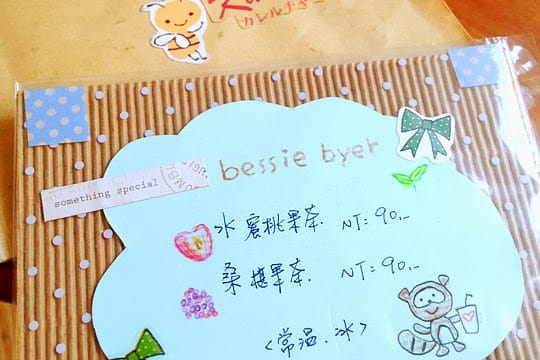 カレルチャー
something special
bessie byer
水蜜桃果茶. NT:90.-
桑椹果茶. NT:90.-
<常溫.冰>